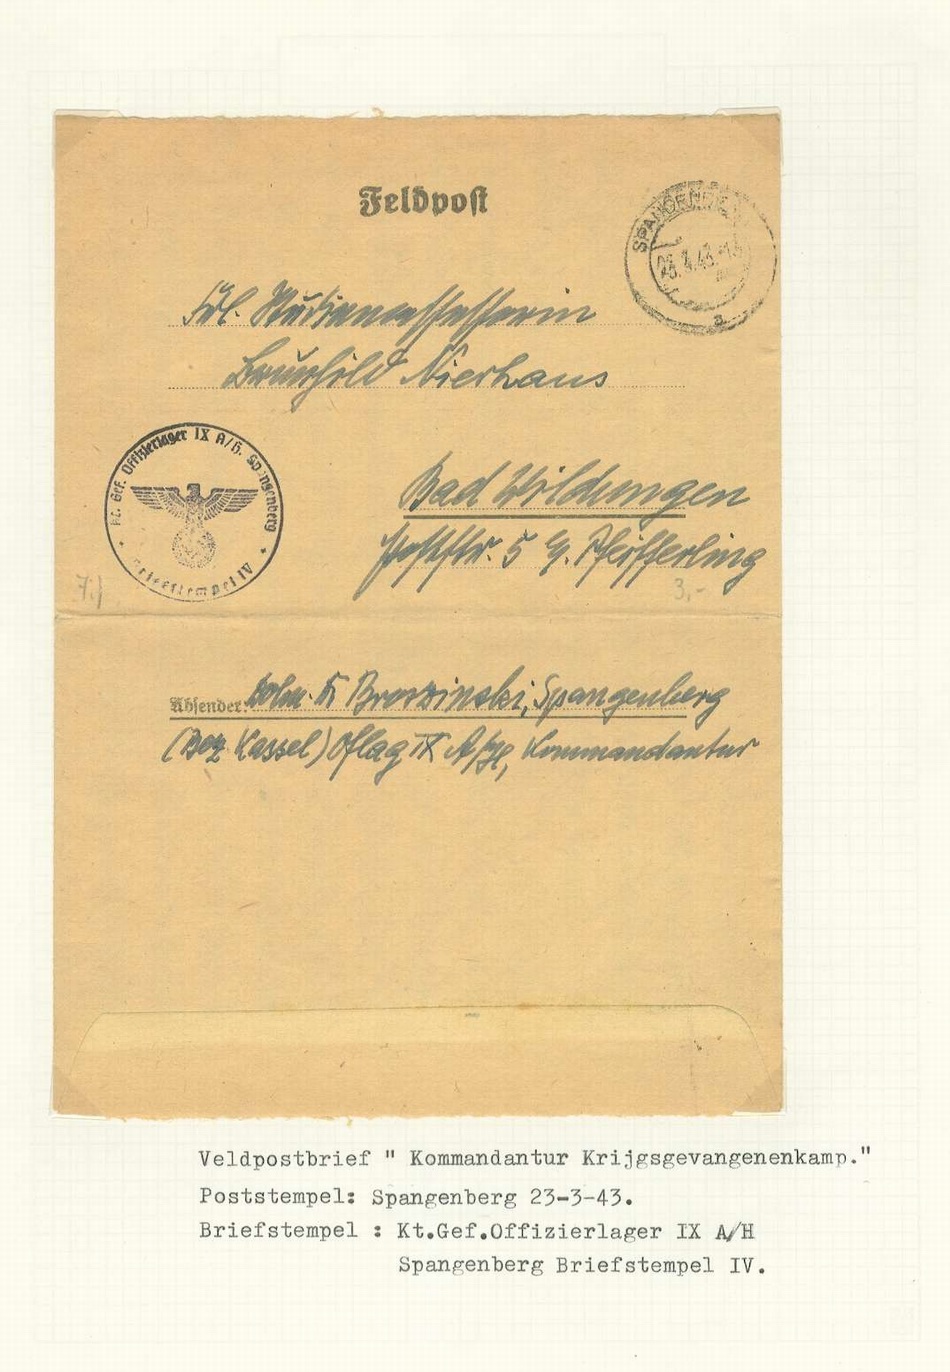 Feldpost
SPANGENBERG
23.3.43.-13
a
Frl. Studienassessorin
Brunhild Nierhaus
Kt. Gef. Offizierlager IX A/H. Spangenberg
Briefstempel IV
Bad Wildungen
Poststr. 5 b. Pfeifferling
3,-
Absender: Broszinski, Spangenberg
(Bez Kassel) Oflag IX A/H, Kommandantur
Veldpostbrief " Kommandantur Krijgsgevangenenkamp."
Poststempel: Spangenberg 23-3-43.
Briefstempel : Kt.Gef.Offizierlager IX A/H
Spangenberg Briefstempel IV.